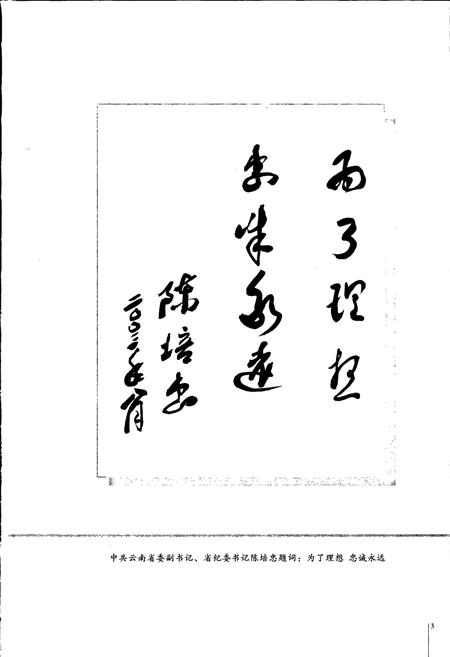 为了理想
忠诚永远
陈培忠
年八月
中共云南省委副书记、省纪委书记陈培忠题词：为了理想 忠诚永远
3